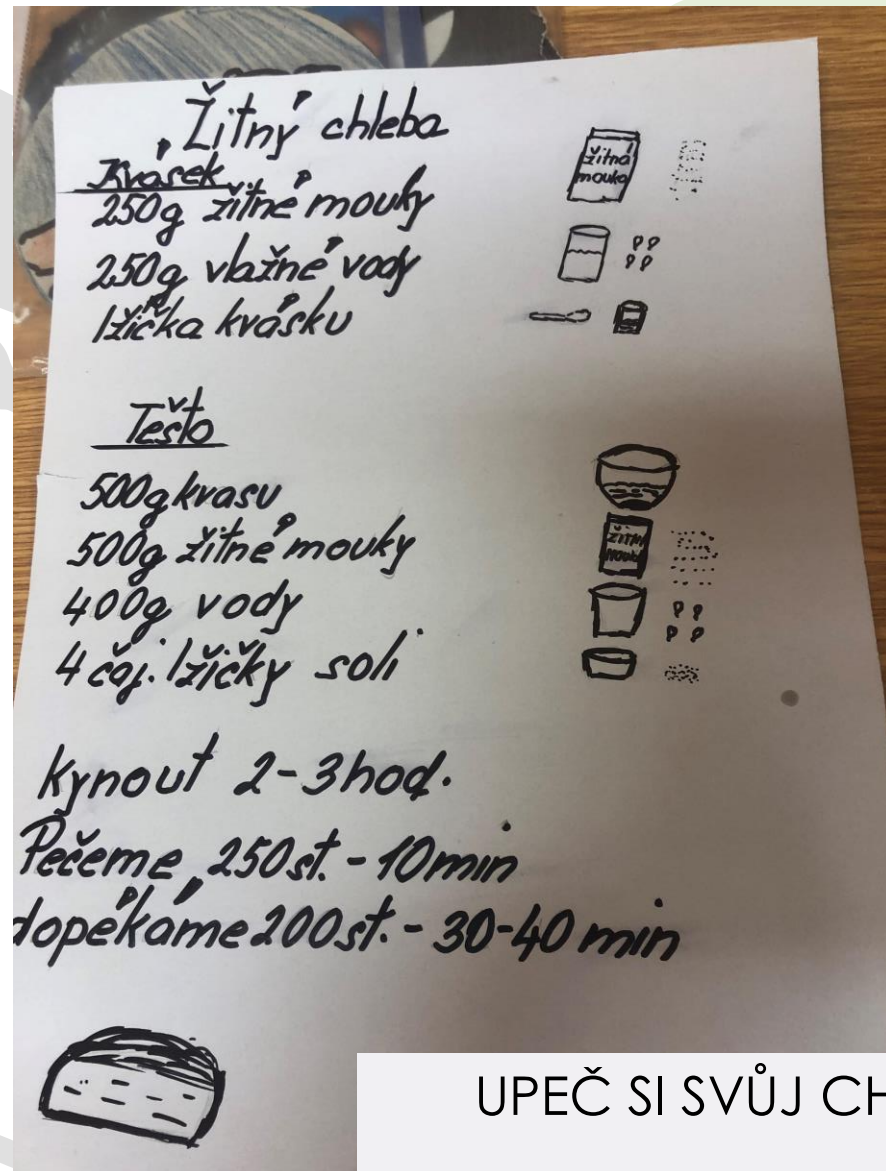 Žitný chleba
Kvásek
250g žitné mouky
žitná
mouka
250g vlažné vody
lžička kvásku
Těsto
500g kvasu
500g žitné mouky
400g vody
4 čaj. lžičky soli
kynout 2-3 hod.
Pečeme 250 st. - 10 min
dopékáme 200 st. - 30-40 min
UPEČ SI SVŮJ CH